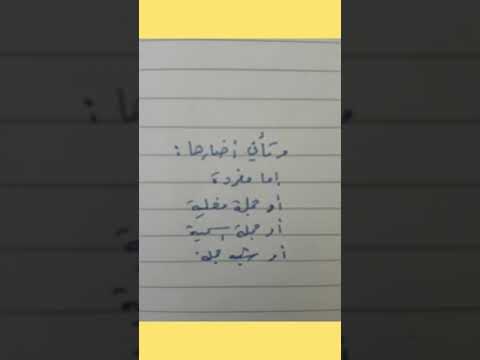 وتأتي أخبارها:
إما مفردة
أو جملة فعلية
أو جملة اسمية
أو شبه جملة.